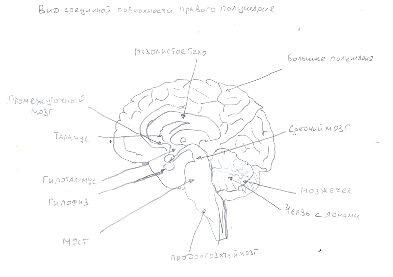 Вид срединной поверхности правого полушария
мозолистое тело
Большие полушария
Промежуточный
мозг
Таламус
Средний мозг
Гипоталамус
Гипофиз
Мозжечок
Червь с ядрами
Мост
Продолговатый мозг